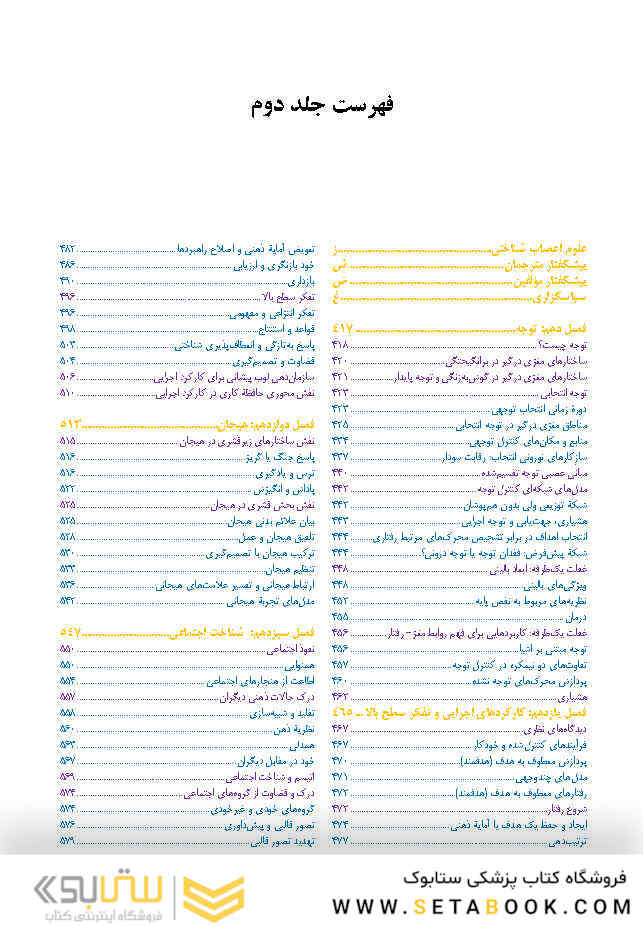 فهرست جلد دوم
علوم اعصاب شناختی ز
پیشگفتار مترجمان ش
پیشگفتار مؤلفین ص
سپاسگزاری غ
فصل دهم: توجه ۴۱۷
توجه چیست؟ ۴۱۸
ساختارهای مغزی درگیر در برانگیختگی ۴۲۰
ساختارهای مغزی درگیر در گوش‌به‌زنگی و توجه پایدار ۴۲۱
توجه انتخابی ۴۲۳
دورهٔ زمانی انتخاب توجهی ۴۲۳
مناطق مغزی درگیر در توجه انتخابی ۴۲۵
منابع و مکان‌های کنترل توجهی ۴۳۴
سازکارهای نورونی انتخاب: رقابت سودار ۴۳۷
مبانی عصبی توجه تقسیم‌شده ۴۴۰
مدل‌های شبکه‌ای کنترل توجه ۴۴۲
شبکهٔ توزیعی ولی بدون هم‌پوشان ۴۴۲
هشیاری، جهت‌یابی و توجه اجرایی ۴۴۳
انتخاب اهداف در برابر تشخیص محرک‌های مرتبط رفتاری ۴۴۴
شبکهٔ پیش‌فرض: فقدان توجه یا توجه درونی؟ ۴۴۴
غفلت یک‌طرفه: ابعاد بالینی ۴۴۸
ویژگی‌های بالینی ۴۴۸
نظریه‌های مربوط به نقص پایه ۴۵۲
درمان ۴۵۵
غفلت یک‌طرفه: کاربردهایی برای فهم روابط مغز – رفتار ۴۵۶
توجه مبتنی بر اشیا ۴۵۶
تفاوت‌های دو نیمکره در کنترل توجه ۴۵۷
پردازش محرک‌های توجه نشده ۴۶۰
هشیاری ۴۶۲
فصل یازدهم: کارکردهای اجرایی و تفکر سطح بالا ۴۶۵
دیدگاه‌های نظری ۴۶۷
فرآیندهای کنترل‌شده و خودکار ۴۶۷
پردازش معطوف به هدف (هدفمند) ۴۷۰
مدل‌های چندوجهی ۴۷۱
رفتارهای معطوف به هدف (هدفمند) ۴۷۲
شروع رفتار ۴۷۲
ایجاد و حفظ یک هدف یا آمایهٔ ذهنی ۴۷۴
ترتیب‌دهی ۴۷۷
تعویض آمایهٔ ذهنی و اصلاح راهبردها ۴۸۲
خود بازنگری و ارزیابی ۴۸۶
بازداری ۴۹۰
تفکر سطح بالا ۴۹۶
تفکر انتزاعی و مفهومی ۴۹۶
قواعد و استنتاج ۴۹۸
پاسخ به تازگی و انعطاف‌پذیری شناختی ۵۰۳
قضاوت و تصمیم‌گیری ۵۰۴
سازمان‌دهی لوب پیشانی برای کارکرد اجرایی ۵۰۶
نقش محوری حافظهٔ کاری در کارکرد اجرایی ۵۱۰
فصل دوازدهم: هیجان ۵۱۳
نقش ساختارهای زیرقشری در هیجان ۵۱۵
پاسخ جنگ یا گریز ۵۱۶
ترس و یادگیری ۵۱۶
پاداش و انگیزش ۵۲۲
نقش بخش قشری در هیجان ۵۲۵
بیان علائم بدنی هیجان ۵۲۵
تلفیق هیجان و عمل ۵۲۸
ترکیب هیجان با تصمیم‌گیری ۵۳۰
تنظیم هیجان ۵۳۳
ارتباط هیجانی و تفسیر علامت‌های هیجانی ۵۳۶
مدل‌های تجربهٔ هیجانی ۵۴۲
فصل سیزدهم: شناخت اجتماعی ۵۴۷
نفوذ اجتماعی ۵۵۰
همنوایی ۵۵۰
اطاعت از هنجارهای اجتماعی ۵۵۴
درک حالات ذهنی دیگران ۵۵۷
تقلید و شبیه‌سازی ۵۵۸
نظریهٔ ذهن ۵۶۰
همدلی ۵۶۳
خود در مقابل دیگران ۵۶۷
اتیسم و شناخت اجتماعی ۵۶۹
درک و قضاوت از گروه‌های اجتماعی ۵۷۴
گروه‌های خودی و غیرخودی ۵۷۴
تصور قالبی و پیش‌داوری ۵۷۶
تهدید تصور قالبی ۵۷۹
فروشگاه کتاب پزشکی ستابوک
WWW.SETABOOK.COM
ستابوک
فروشگاه اینترنتی کتاب